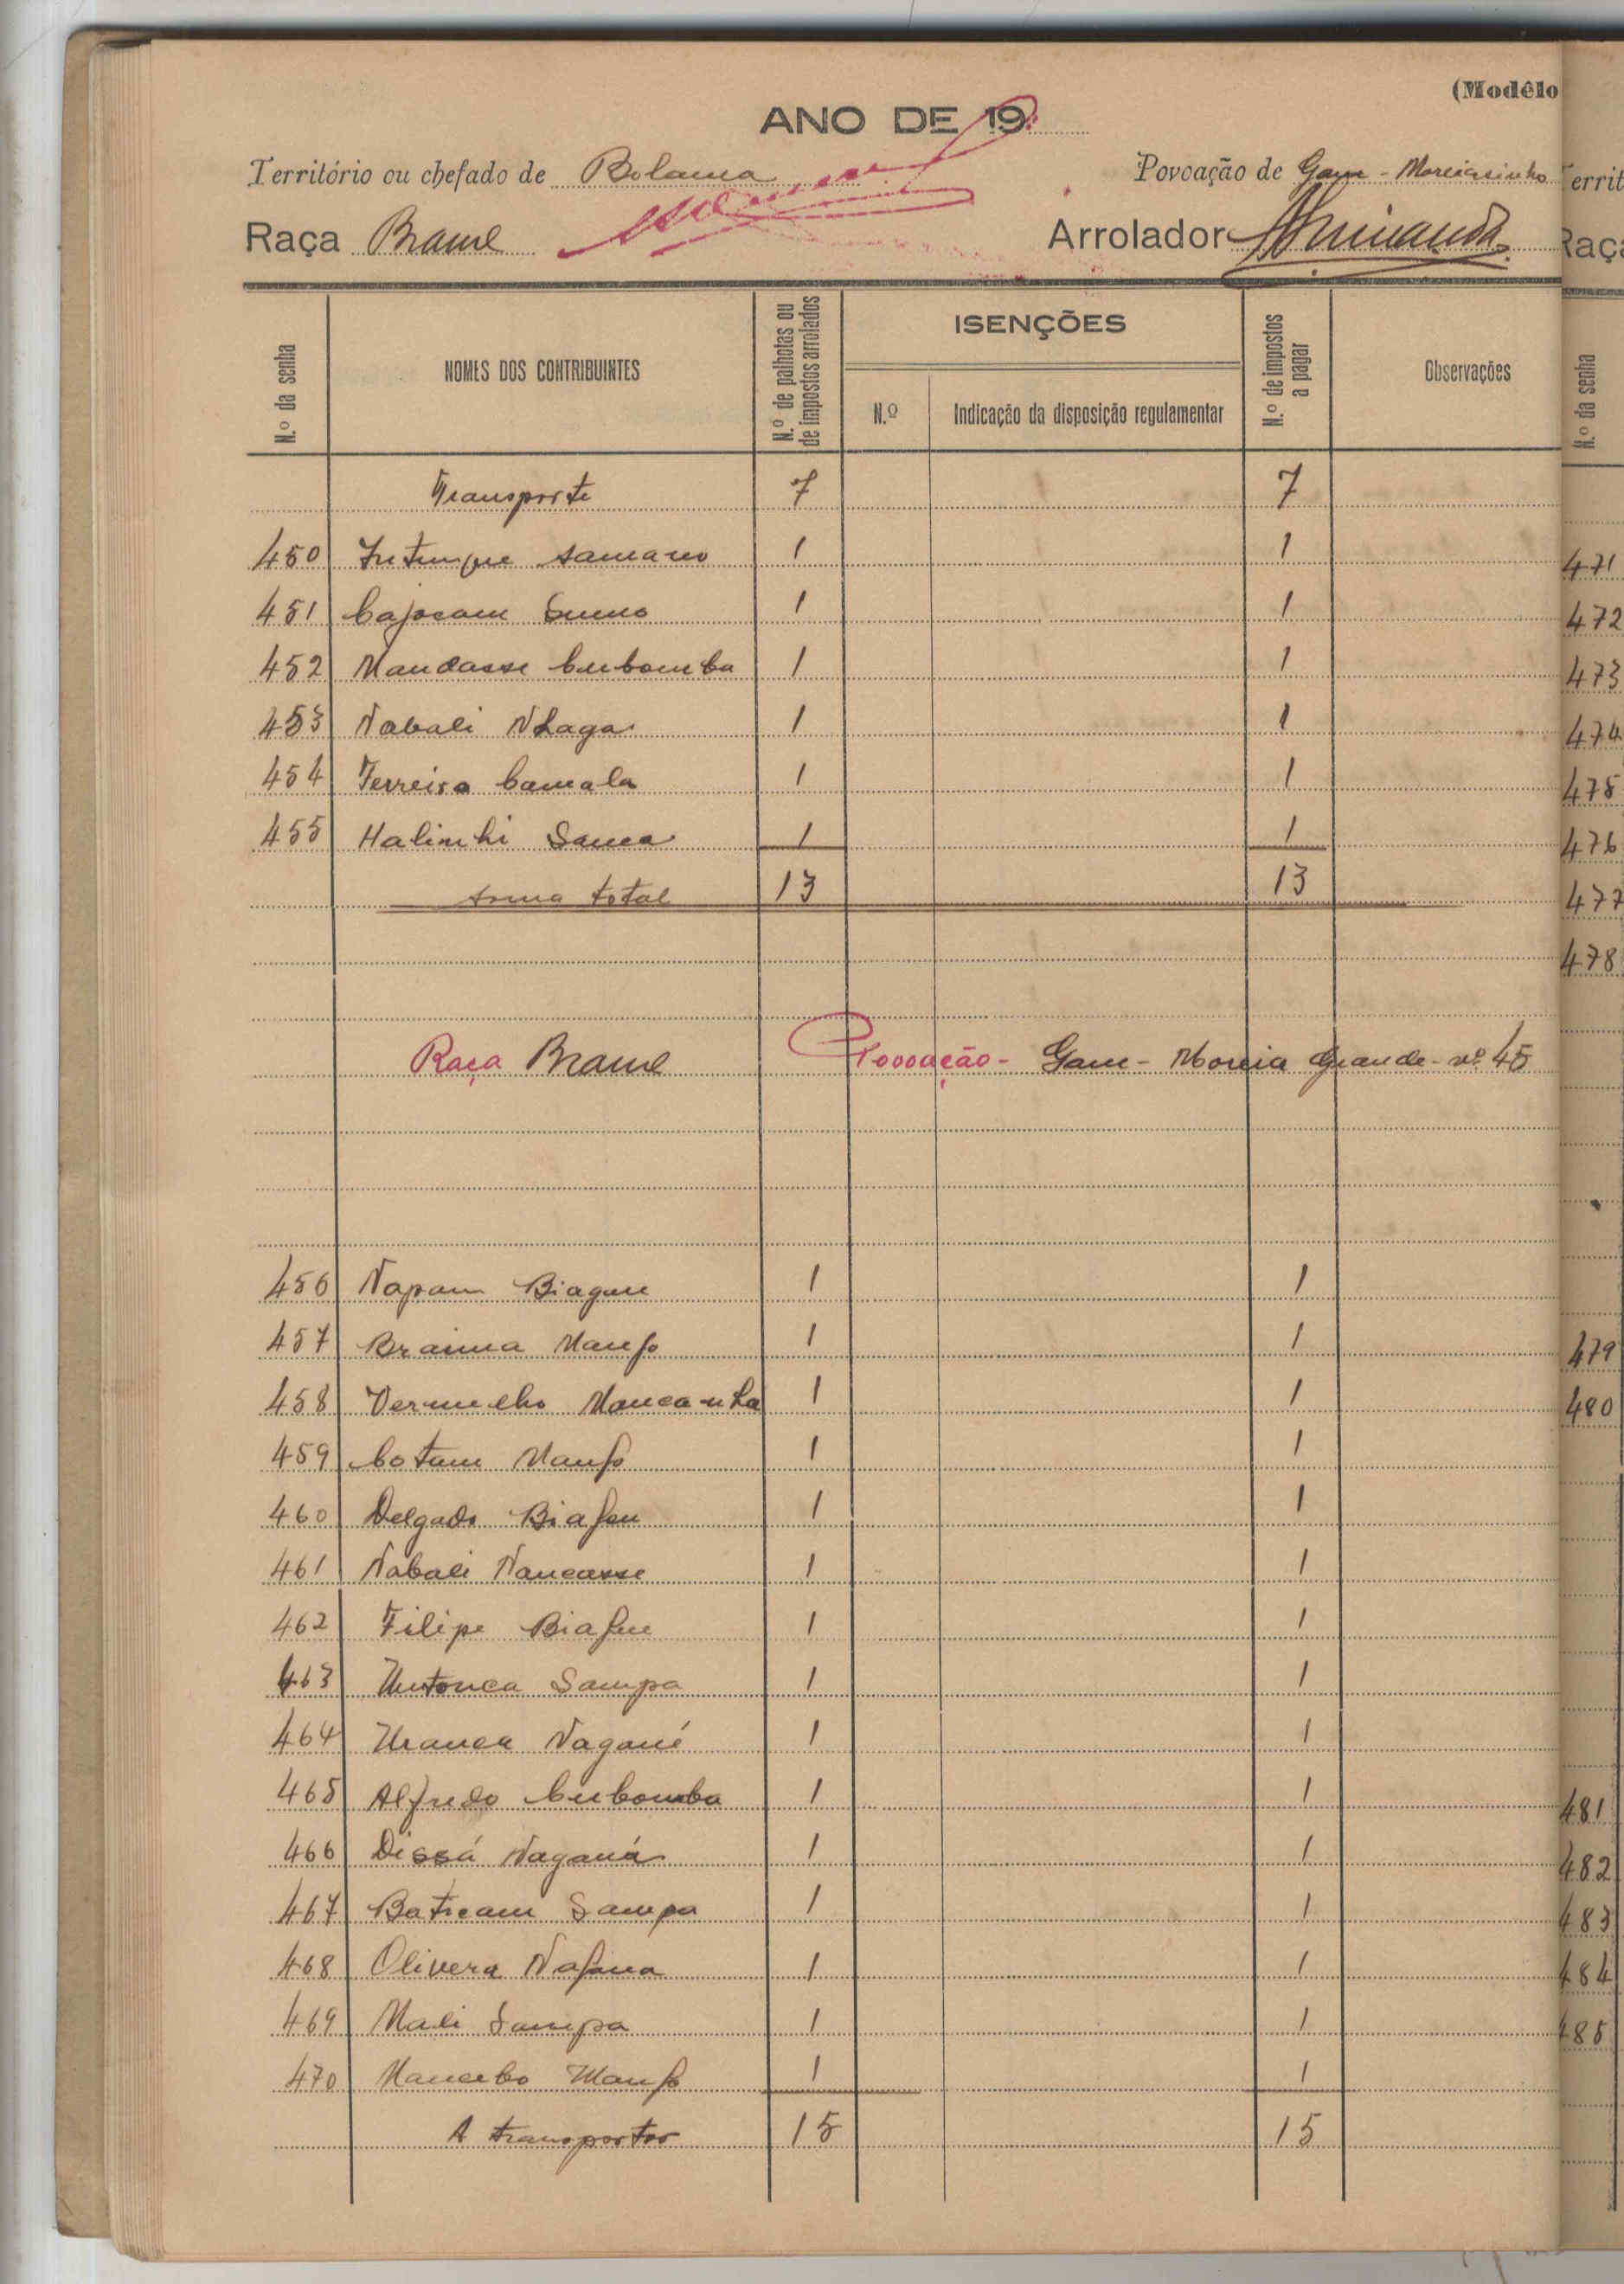 (Modêlo
ANO DE 19
Território ou chefado de Bolama Povoação de Gam - Moreiasinho
Raça Brame Arrolador
N.º da senha
NOMES DOS CONTRIBUINTES
N.º de palhotas ou de impostos arrolados
ISENÇÕES
N.º
Indicação da disposição regulamentar
N.º de impostos a pagar
Observações
Transporte 7 7
450 1 1
451 1 1
452 Mandasse Cubomba 1 1
453 Nabali Nhaga 1 1
454 Ferreira Camala 1 1
455 Halinhi Sanca 1 1
Soma total 13 13
Raça Brame Povoação - Gam - Moreia Grande - nº 45
456 Napam Biague 1 1
457 Braima Manfo 1 1
458 Vermelho Mancanha 1 1
459 Cotum Manfo 1 1
460 Delgado Biafen 1 1
461 Nabali Nancasse 1 1
462 Filipe Biafen 1 1
463 Sampa 1 1
464 1 1
465 Alfredo Cubomba 1 1
466 Dissá Naganá 1 1
467 Baticam Sampa 1 1
468 Olivera Nafana 1 1
469 Mali Sampa 1 1
470 Mancebo Manfo 1 1
A transportar 15 15
Territ
Raça
N.º da senha
471
472
473
474
475
476
477
478
479
480
481
482
483
484
485